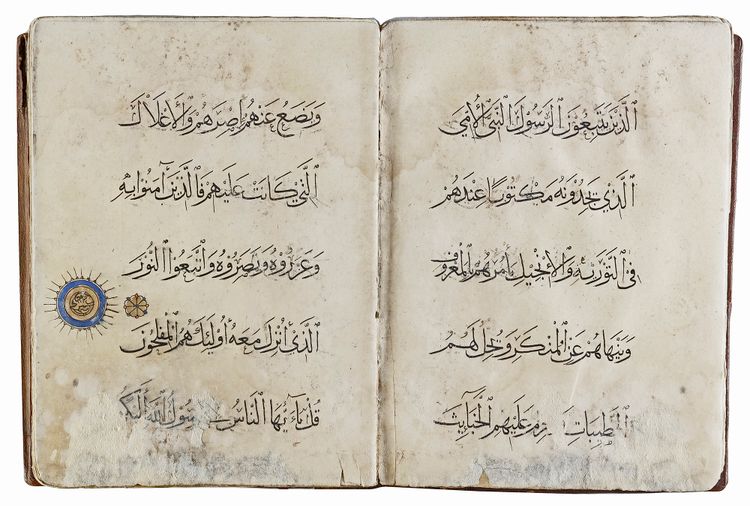 الَّذِينَ يَتَّبِعُونَ الرَّسُولَ النَّبِيَّ الْأُمِّيَّ
الَّذِي يَجِدُونَهُ مَكْتُوبًا عِنْدَهُمْ
فِي التَّوْرَيةِ وَالْإِنْجِيلِ يَأْمُرُهُمْ بِالْمَعْرُوفِ
وَيَنْهَاهُمْ عَنِ الْمُنْكَرِ وَيُحِلُّ لَهُمُ
الطَّيِّبَاتِ عَلَيْهِمُ الْخَبَايِثَ
وَيَضَعُ عَنْهُمْ إِصْرَهُمْ وَالْأَغْلَالَ
الَّتِي كَانَتْ عَلَيْهِمْ فَالَّذِينَ آمَنُوا بِهِ
وَعَزَّرُوهُ وَنَصَرُوهُ وَاتَّبَعُوا النُّورَ
الَّذِي أُنْزِلَ مَعَهُ أُولَئِكَ هُمُ الْمُفْلِحُونَ
قُلْ يَأَيُّهَا النَّاسُ رَسُولُ اللَّهِ إِلَيْكُمْ